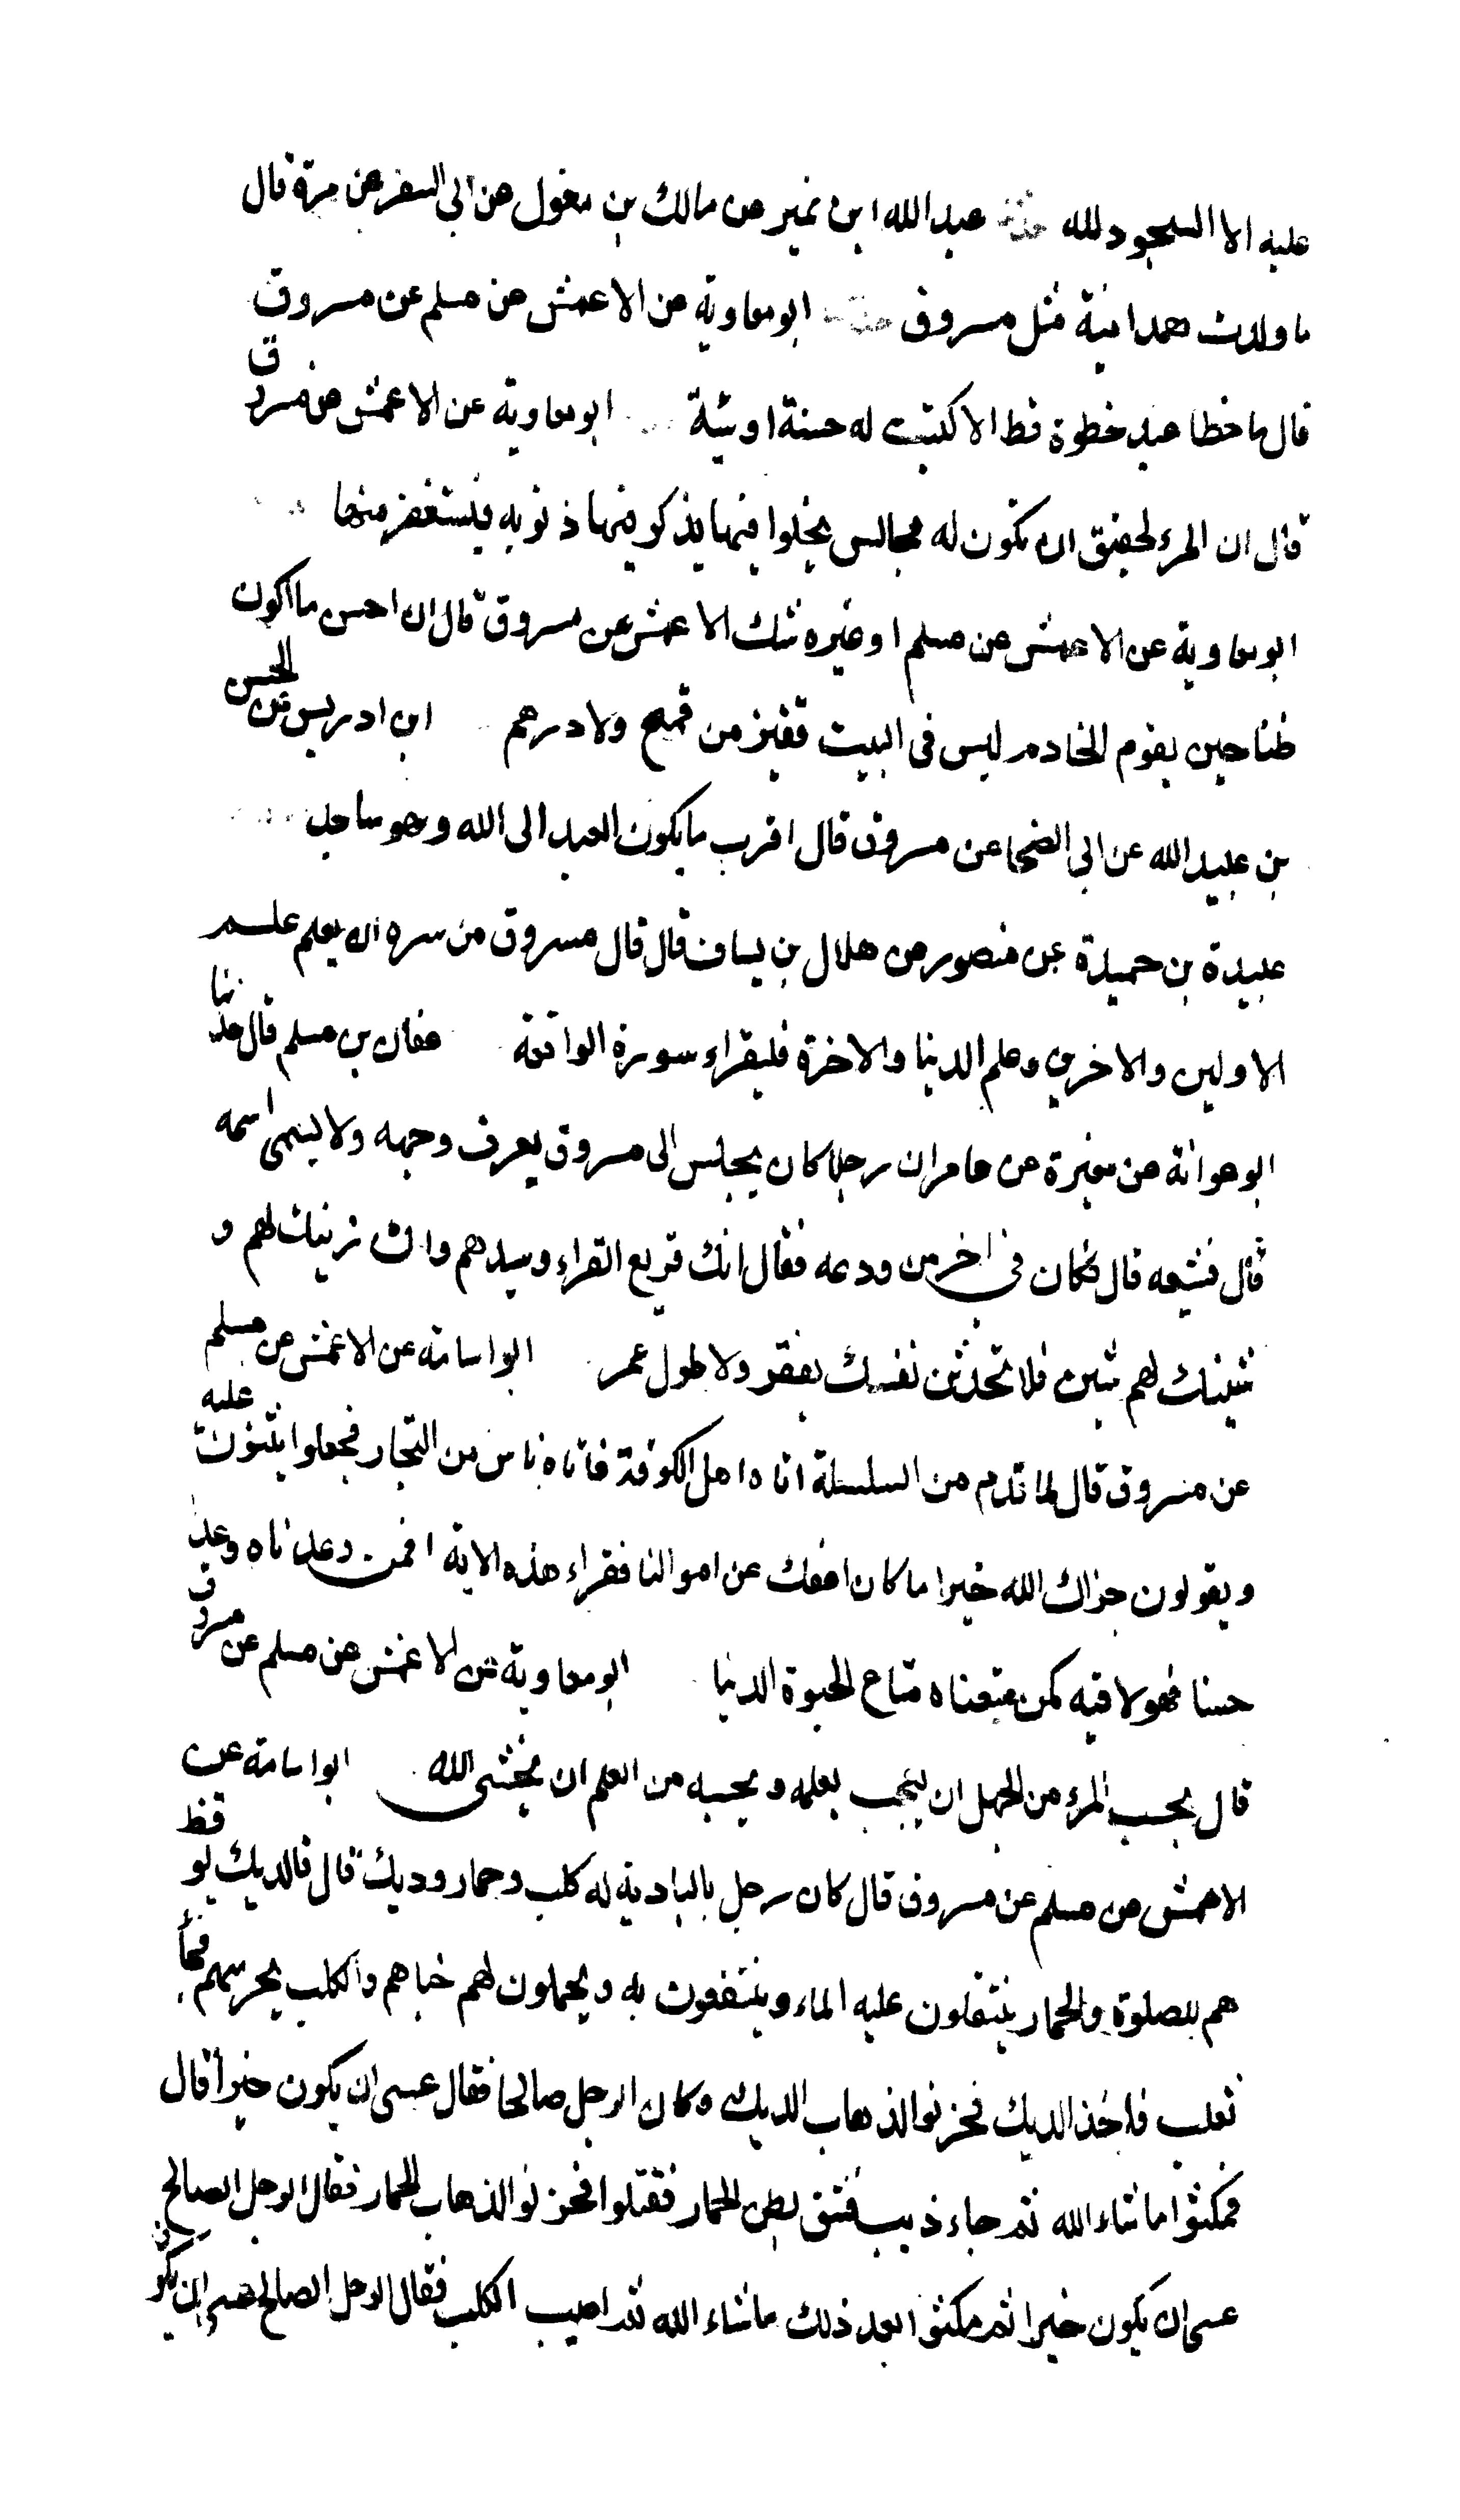 عليه الا السجود لله حدثنا عبد الله ابن نمير عن مالك بن مغول عن ابي السفر عن مرة قال
ما ولدت همدانية مثل مسروق حدثنا ابو معاوية عن الاعمش عن مسلم عن مسروق
قال ما خطا عبد خطوة قط الا كتبت له حسنة او سيئة ابو معاوية عن الاعمش عن مسروق
قال ان المرء لحقيق ان تكون له مجالس يخلوا فيها يذكر فيها ذنوبه فيستغفر منها
ابو معاوية عن الاعمش عن مسلم او غيره شك الاعمش عن مسروق قال ان احسن ما اكون
ظنا حين يقوم الخادم ليس فى البيت قفيز من قمح ولا درهم ابن ادريس عن الحسن
بن عبيد الله عن ابي الضحا عن مسروق قال اقرب ما يكون العبد الى الله وهو ساجد
عبيدة بن حميدة عن منصور عن هلال بن يساف قال قال مسروق من سره ان يعلم علم
الاولين والاخرين وعلم الدنيا والاخرة فليقراء سورة الواقعة عفان بن مسلم قال حدثنا
ابو عوانة عن مغيرة عن عامر ان رجلا كان يجلس الى مسروق يعرف وجهه ولا يسمى اسمه
قال فشيعه قال فكان في اخر من ودعه فقال انك قريع القراء وسيدهم وان زينك لهم و
شينك لهم شين فلا تحدثن نفسك بفقر ولا طول عمر ابو اسامة عن الاعمش عن مسلم
عن مسروق قال لما قدم من السلسلة اتاه اهل الكوفة فاتاه ناس من التجار فجعلوا يثنون عليه
ويقولون جزاك الله خيرا ما كان اعفك عن اموالنا فقراء هذه الاية افمن وعدناه وعدا
حسنا فهو لاقيه كمن متعناه متاع الحيوة الدنيا ابو معاوية عن الاعمش عن مسلم عن مسروق
قال بحسب المرء من الجهل ان يعجب بعلمه وبحسبه من العلم ان يخشى الله ابو اسامة عن
الاعمش عن مسلم عن مسروق قال كان رجل بالبادية له كلب وحمار وديك قال فالديك يوقظ
هم للصلوة والحمار ينتقلون عليه الماء وينتفعون به ويحملون لهم خباهم والكلب يحرسهم فجاء
ثعلب فاخذ الديك فحزنوا لذهاب الديك وكان الرجل صالحا فقال عسى ان يكون خيرا قال
فمكثوا ما شاء الله ثم جاء ذيب فشق بطن الحمار فقتلوا فحزنوا لذهاب الحمار فقال الرجل الصالح
عسى ان يكون خيرا ثم مكثوا بعد ذلك ما شاء الله ثم اصيب الكلب فقال الرجل الصالح عسى ان يكون